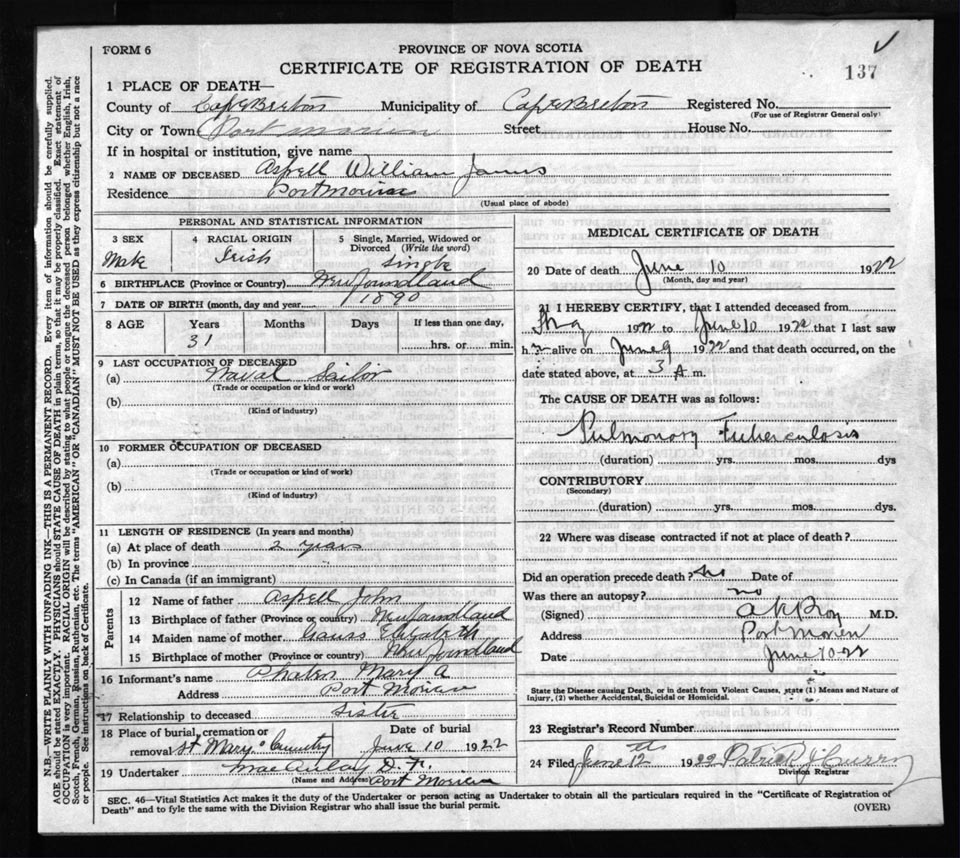 FORM 6
PROVINCE OF NOVA SCOTIA
CERTIFICATE OF REGISTRATION OF DEATH
137
1 PLACE OF DEATH—
County of Cape Breton Municipality of Cape Breton Registered No.
(For use of Registrar General only)
City or Town Port Morien Street House No.
If in hospital or institution, give name
2 NAME OF DECEASED Aspell William James
Residence Port Morien
(Usual place of abode)
PERSONAL AND STATISTICAL INFORMATION
3 SEX 4 RACIAL ORIGIN 5 Single, Married, Widowed or
Divorced (Write the word)
Male Irish Single
6 BIRTHPLACE (Province or Country) Newfoundland
7 DATE OF BIRTH (month, day and year) 1890
8 AGE Years Months Days If less than one day,
31 hrs. or min.
9 LAST OCCUPATION OF DECEASED
(a) Naval Sailor
(Trade or occupation or kind of work)
(b)
(Kind of industry)
10 FORMER OCCUPATION OF DECEASED
(a)
(Trade or occupation or kind of work)
(b)
(Kind of industry)
11 LENGTH OF RESIDENCE (In years and months)
(a) At place of death 2 years
(b) In province
(c) In Canada (if an immigrant)
Parents
12 Name of father Aspell John
13 Birthplace of father (Province or country) Newfoundland
14 Maiden name of mother Elizabeth
15 Birthplace of mother (Province or country) Newfoundland
16 Informant's name Mary A
Address Port Morien
17 Relationship to deceased Sister
18 Place of burial, cremation or Date of burial
removal St Mary's June 10 1922
19 Undertaker MacAulay D. N.
(Name and Address) Port Morien
MEDICAL CERTIFICATE OF DEATH
20 Date of death June 10 1922
(Month, day and year)
21 I HEREBY CERTIFY, that I attended deceased from
1922 to June 10 1922 that I last saw
h alive on June 9 1922 and that death occurred, on the
date stated above, at 3 A m.
The CAUSE OF DEATH was as follows:
Pulmonary Tuberculosis
(duration) yrs. mos. dys
CONTRIBUTORY
(Secondary)
(duration) yrs. mos. dys.
22 Where was disease contracted if not at place of death?
Did an operation precede death? No Date of
Was there an autopsy? no
(Signed) M.D.
Address Port Morien
Date June 10-22
State the Disease causing Death, or in death from Violent Causes, state (1) Means and Nature of
Injury, (2) whether Accidental, Suicidal or Homicidal.
23 Registrar's Record Number
24 Filed June 12th 1922 Patrick J. Curry
Division Registrar
SEC. 46—Vital Statistics Act makes it the duty of the Undertaker or person acting as Undertaker to obtain all the particulars required in the "Certificate of Registration of
Death" and to fyle the same with the Division Registrar who shall issue the burial permit.
(OVER)
N.B.—WRITE PLAINLY WITH UNFADING INK—THIS IS A PERMANENT RECORD. Every item of information should be carefully supplied.
AGE should be stated EXACTLY. PHYSICIANS should STATE CAUSE OF DEATH in plain terms, so that it may be properly classified. Exact statement of
OCCUPATION is very important. RACIAL ORIGIN will be described by stating to what people or tongue the deceased person belonged whether English, Irish,
Scotch, French, German, Russian, Ruthenian, etc. The terms "AMERICAN" OR "CANADIAN" MUST NOT BE USED as they express citizenship but not a race
or people. See instructions on back of Certificate.